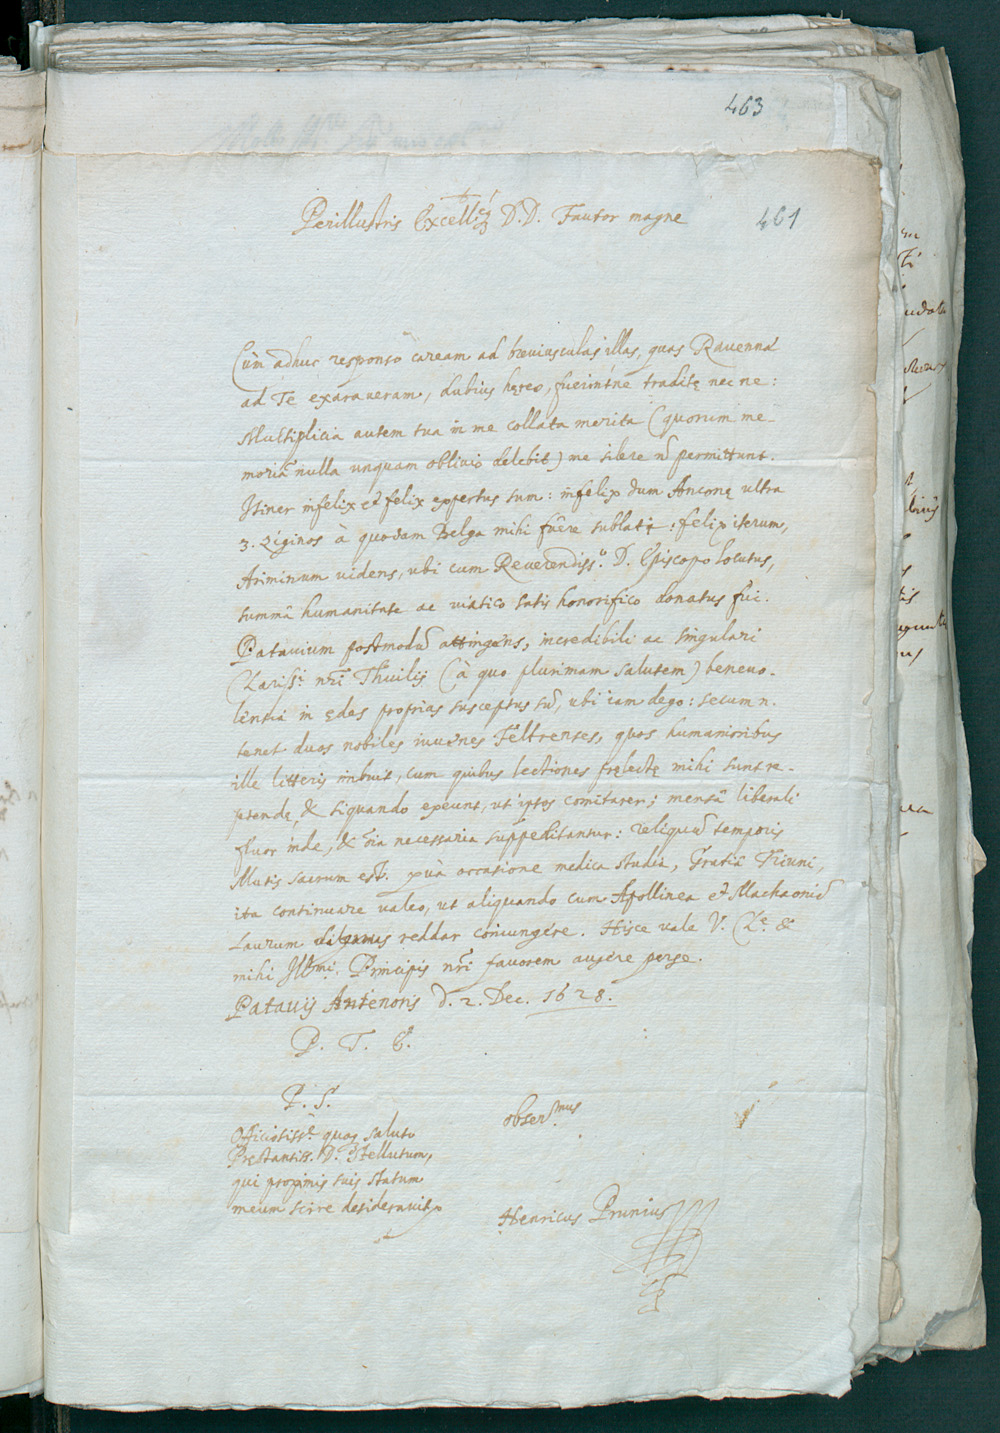 463
Perillustris Excell.q̃ D.D. Fautor magne
461
Cùm adhuc responsō caream ad breviusculas illas, quas Ravennâ
ad Te exaraveram, dubius hęreo, fuerintne traditę nec ne:
Multiplicia autem tua in me collata merita (quorum me-
moriã nulla unquam oblivio delebit) me silere nõ permittunt.
Itiner infelix et felix expertus sum: infelix dum Anconę ultra
3. Ziginos à quodam Belga mihi fuêre sublati: felix iterum,
Ariminum videns, ubi cum Reverendiss.º D. Episcopo locutus,
summâ humanitate ac viatico satis honorifico donatus fui.
Patavium postmodũ attingens, incredibili ac singulari
Clariss.i nr̃i Thuilij (à quo plurimam salutem) benevo-
lentiâ in ędes proprias susceptus sũ, ubi iam dego: secum n.
tenet duos nobiles iuvenes Feltrenses, quos humanioribus
ille litteris imbuit, cum quibus lectiones pręlectę mihi sunt re-
petendę, & siquando exeunt, ut ipsos comitarer; mensâ liberali
fruor inde, & oĩa necessaria suppeditantur: reliquũ temporis
Musis sacrum est. quâ occasione medica studia, Gratiâ Triuni,
ita continuare valeo, ut aliquando cum Apollinea et Machaoniâ
Laurum reddar coniungere. Hisce vale V. Cl.e &
mihi Ill.mi Principis nr̃i favorem augere perge.
Patavij Antenoris d. 2. Dec. 1628.
P. T. E.
P. S.
Officiosiss.e quoq saluto
Pręstantiss. D. Stellutum,
qui proximis suis statum
meum scire desideravit.
obser.mus
Henricus Prunius